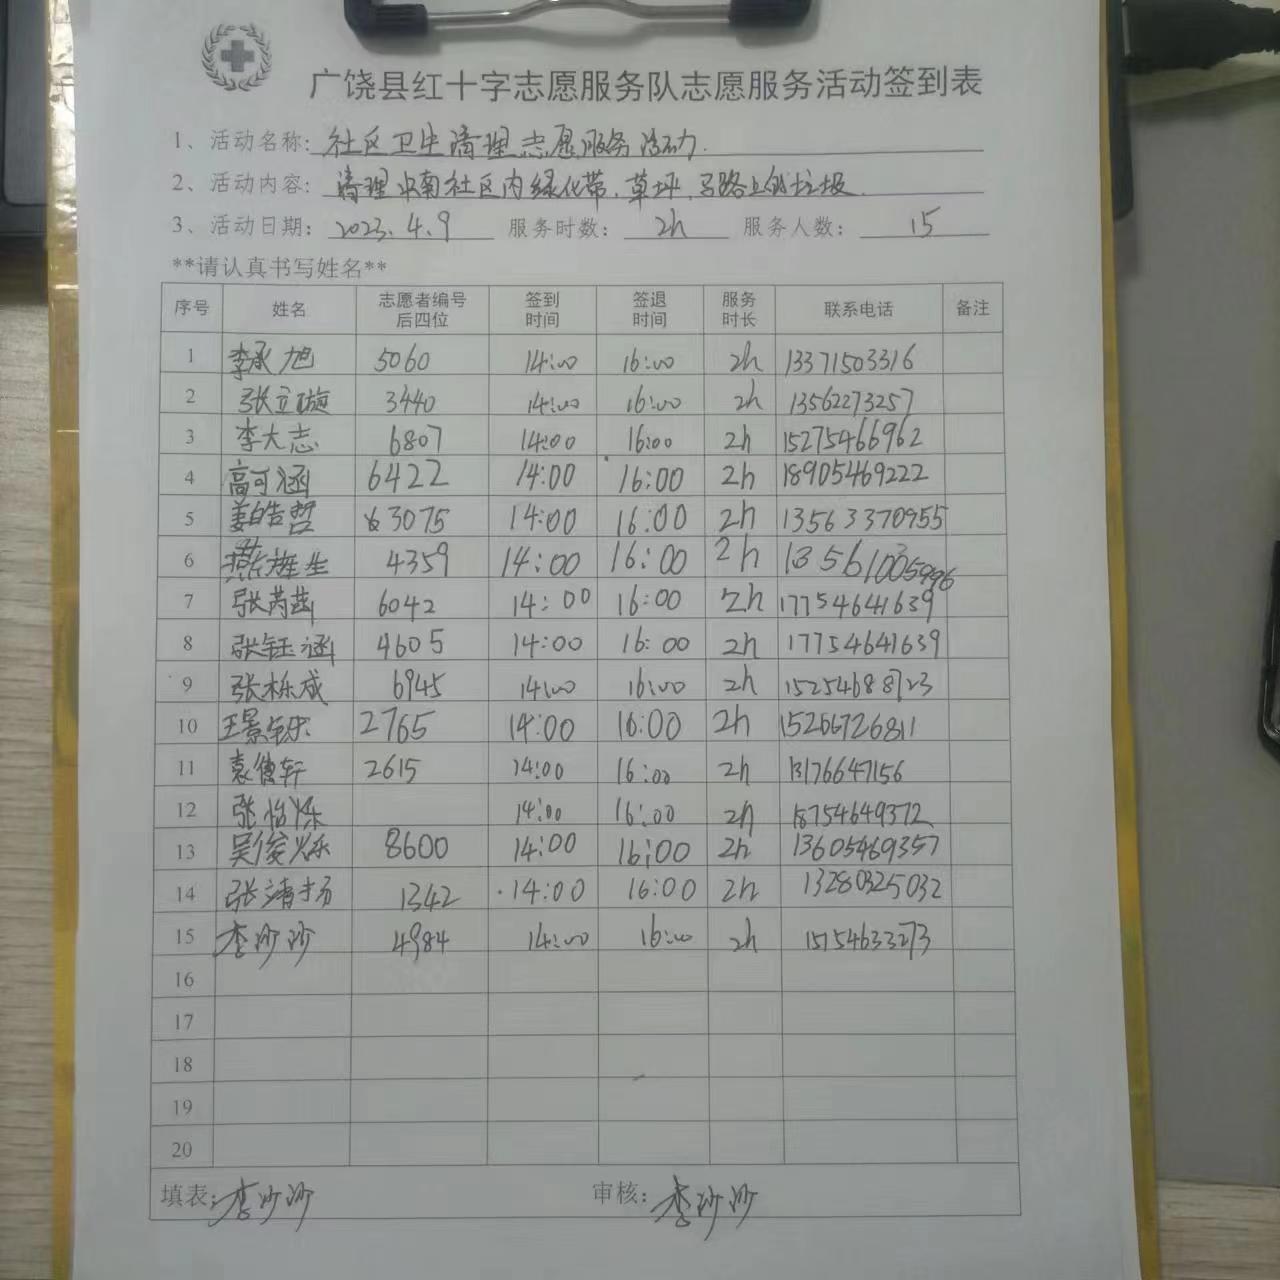 广饶县红十字志愿服务队志愿服务活动签到表
1、活动名称: 社区卫生清理志愿服务活动.
2、活动内容: 清理中南社区内绿化带、草坪、马路上的垃圾.
3、活动日期: 2023.4.9 服务时数: 2h 服务人数: 15
**请认真书写姓名**
序号 姓名 志愿者编号后四位 签到时间 签退时间 服务时长 联系电话 备注
1 李承旭 5060 14:00 16:00 2h 13371503316
2 张立璇 3440 14:00 16:00 2h 13562273257
3 李大志 6807 14:00 16:00 2h 15275466962
4 高可涵 6422 14:00 16:00 2h 18905469222
5 姜皓哲 3075 14:00 16:00 2h 13563370955
6 4359 14:00 16:00 2h
7 张芮菡 6042 14:00 16:00 2h 17754641639
8 张钰涵 4605 14:00 16:00 2h 17754641639
9 张栎成 6945 14:00 16:00 2h 15254688723
10 2765 14:00 16:00 2h 15266726811
11 2615 14:00 16:00 2h 13176647156
12 张怡烁 14:00 16:00 2h 18754649372
13 吴俊烁 8600 14:00 16:00 2h 13605469357
14 张靖扬 1342 14:00 16:00 2h 13280325032
15 李沙沙 4984 14:00 16:00 2h 15154633273
16
17
18
19
20
填表: 李沙沙 审核: 李沙沙